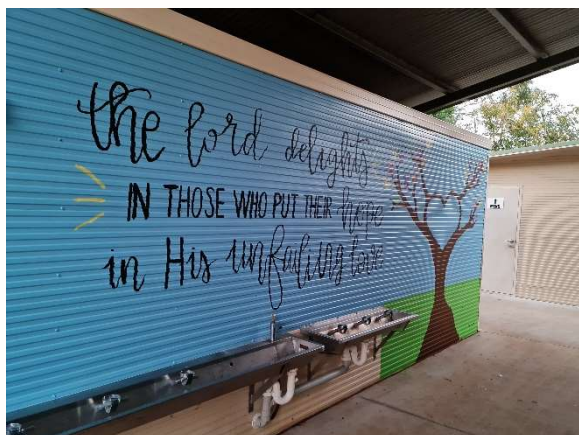 the lord delights
IN THOSE WHO PUT THEIR hope
in His unfailing love